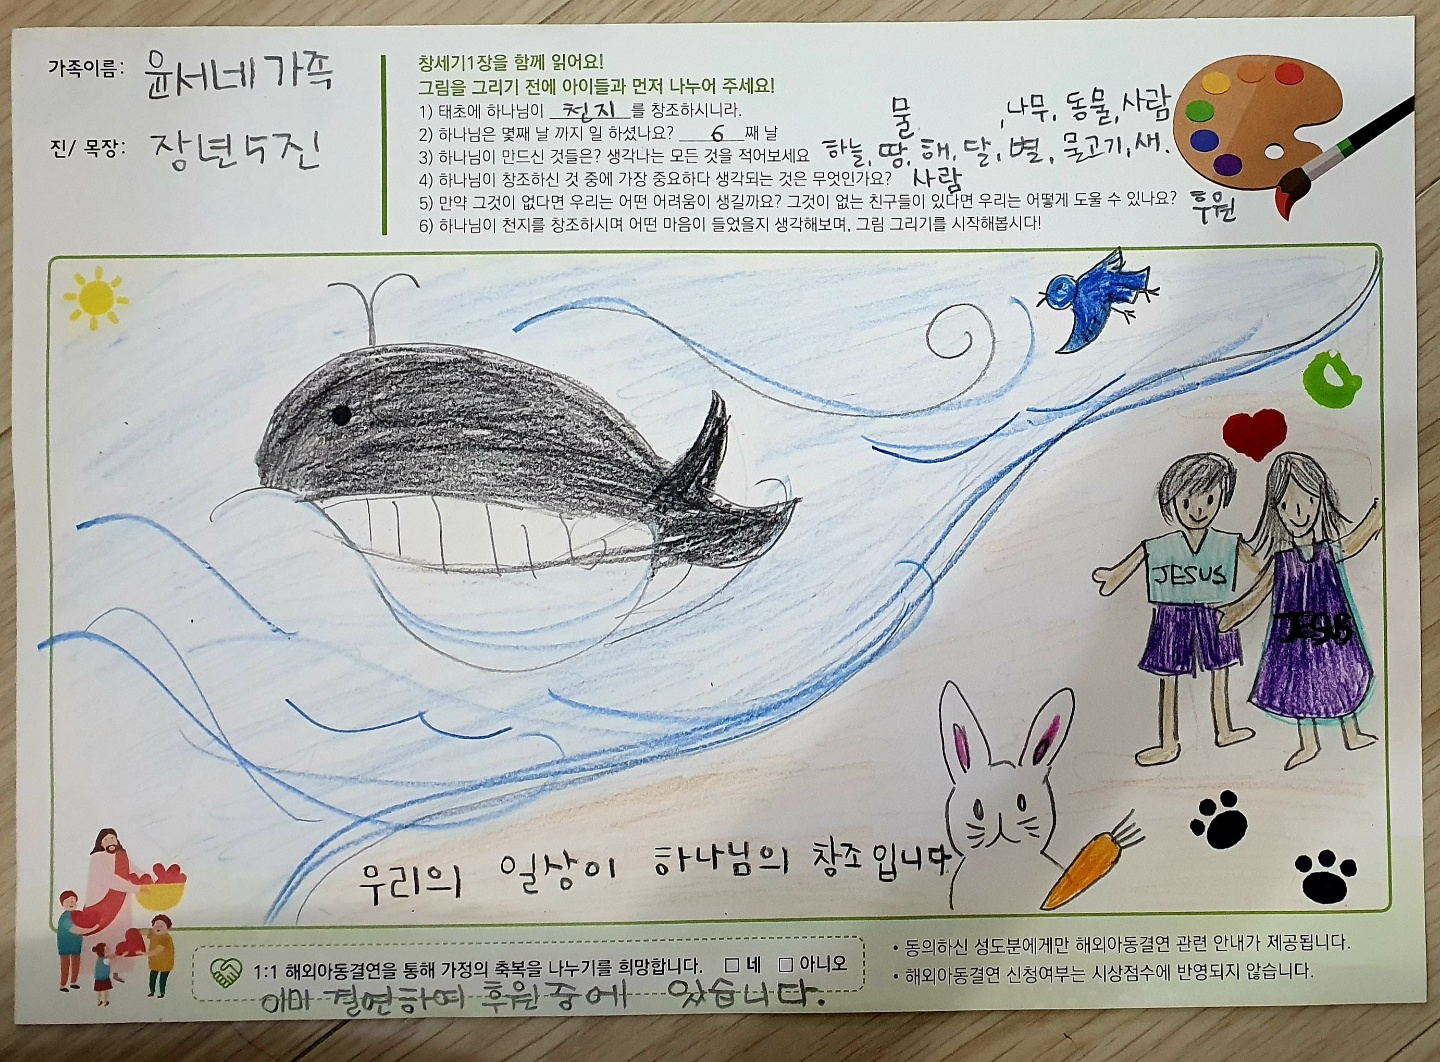 가족이름: 윤서네 가족
진/ 목장: 장년5진
창세기1장을 함께 읽어요!
그림을 그리기 전에 아이들과 먼저 나누어 주세요!
1) 태초에 하나님이 천지를 창조하시니라.
2) 하나님은 몇째 날 까지 일 하셨나요? 6째 날
3) 하나님이 만드신 것들은? 생각나는 모든 것을 적어보세요
물, 나무, 동물, 사람
하늘, 땅, 해, 달, 별, 물고기, 새.
4) 하나님이 창조하신 것 중에 가장 중요하다 생각되는 것은 무엇인가요? 사람
5) 만약 그것이 없다면 우리는 어떤 어려움이 생길까요? 그것이 없는 친구들이 있다면 우리는 어떻게 도울 수 있나요? 후원
6) 하나님이 천지를 창조하시며 어떤 마음이 들었을지 생각해보며, 그림 그리기를 시작해봅시다!
JESUS
JESUS
우리의 일상이 하나님의 창조입니다
1:1 해외아동결연을 통해 가정의 축복을 나누기를 희망합니다. □ 네 □ 아니오
이미 결연하여 후원중에 있습니다.
• 동의하신 성도분에게만 해외아동결연 관련 안내가 제공됩니다.
• 해외아동결연 신청여부는 시상점수에 반영되지 않습니다.